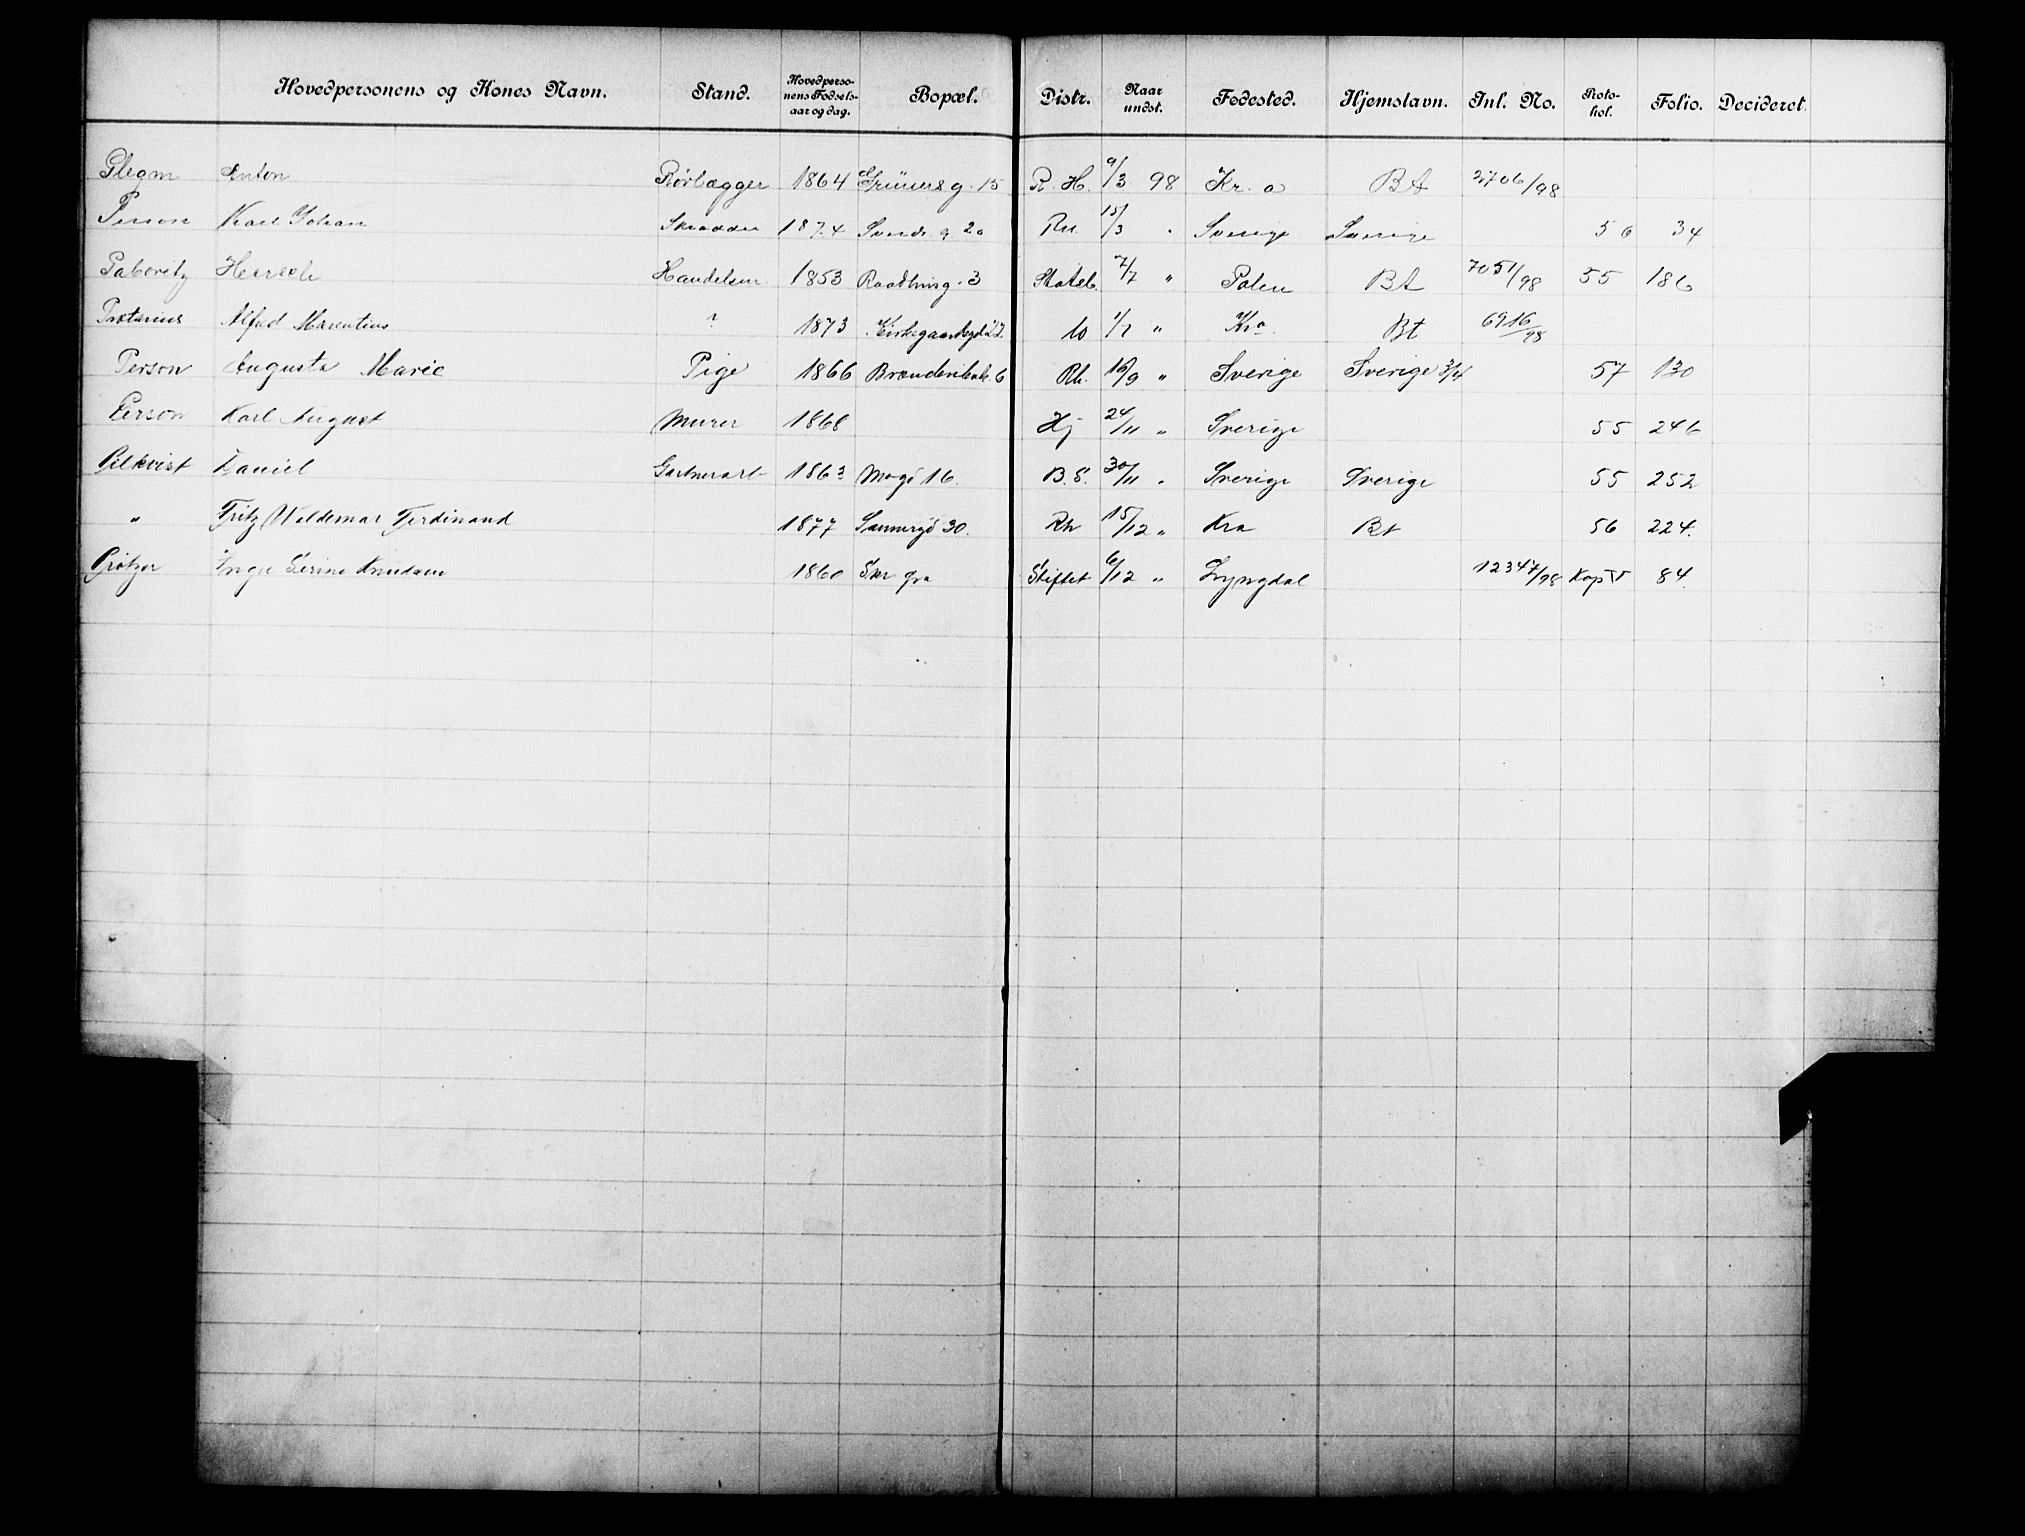 Hovedpersonens og Kones Navn. Stand. Hovedpersonens Fødselsaar og dag. Bopæl. Distr. Naar undst. Fødested. Hjemstavn. Inl. No. Protokol. Folio. Decideret.
Plegm Anton Rørlægger 1864 Grünersg. 15 R. H. 9/3 98 Kr. a Bt 2706/98
Person Karl Johan Skrædder 1874 g. 20 Rh. 15/3 " Sverige Sverige 56 34
Paboritz Hersch Handelsm 1853 Raadhusg. 3 Statsb. 7/7 " Polen Bt 7051/98 55 186
Alfred ? 1873 1/7 " Kra. Bt 6916/98
Person Augusta Marie Pige 1866 6 Rh. 16/9 " Sverige Sverige 3/4 57 130
Person Karl August Murer 1868 Hj 24/11 " Sverige 55 246
Pilkvist Daniel Gartnerarb 1863 16. B. S. 30/11 " Sverige Sverige 55 252
" Fritz Waldemar Ferdinand 1877 Sannergd 30. Rh 15/12 " Kra Bt 56 224.
Inga Serine Knudsen 1860 Skr fra Stiftet 6/12 " Lyngdal 12347/98 Kop V 84.